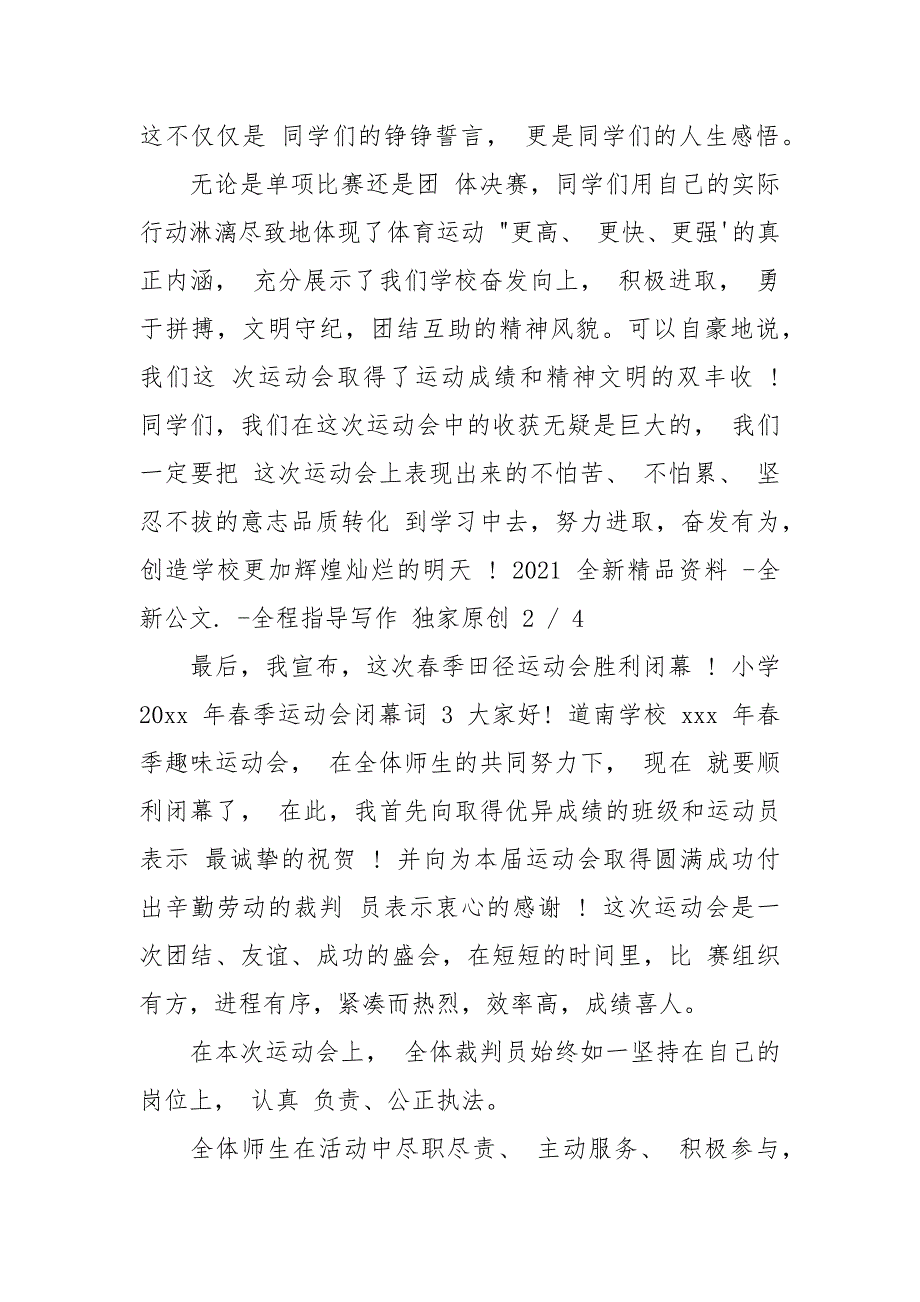 这不仅仅是 同学们的铮铮誓言， 更是同学们的人生感悟。
无论是单项比赛还是团 体决赛，同学们用自己的实际
行动淋漓尽致地体现了体育运动 "更高、 更快、更强'的真
正内涵， 充分展示了我们学校奋发向上， 积极进取， 勇
于拼搏，文明守纪，团结互助的精神风貌。可以自豪地说，
我们这 次运动会取得了运动成绩和精神文明的双丰收 !
同学们，我们在这次运动会中的收获无疑是巨大的， 我们
一定要把 这次运动会上表现出来的不怕苦、 不怕累、 坚
忍不拔的意志品质转化 到学习中去，努力进取，奋发有为，
创造学校更加辉煌灿烂的明天 ! 2021 全新精品资料 -全
新公文. -全程指导写作 独家原创 2 / 4
最后，我宣布，这次春季田径运动会胜利闭幕 ! 小学
20xx 年春季运动会闭幕词 3 大家好! 道南学校 xxx 年春
季趣味运动会， 在全体师生的共同努力下， 现在 就要顺
利闭幕了， 在此，我首先向取得优异成绩的班级和运动员
表示 最诚挚的祝贺 ! 并向为本届运动会取得圆满成功付
出辛勤劳动的裁判 员表示衷心的感谢 ! 这次运动会是一
次团结、友谊、成功的盛会，在短短的时间里，比 赛组织
有方，进程有序，紧凑而热烈，效率高，成绩喜人。
在本次运动会上， 全体裁判员始终如一坚持在自己的
岗位上， 认真 负责、公正执法。
全体师生在活动中尽职尽责、 主动服务、 积极参与，